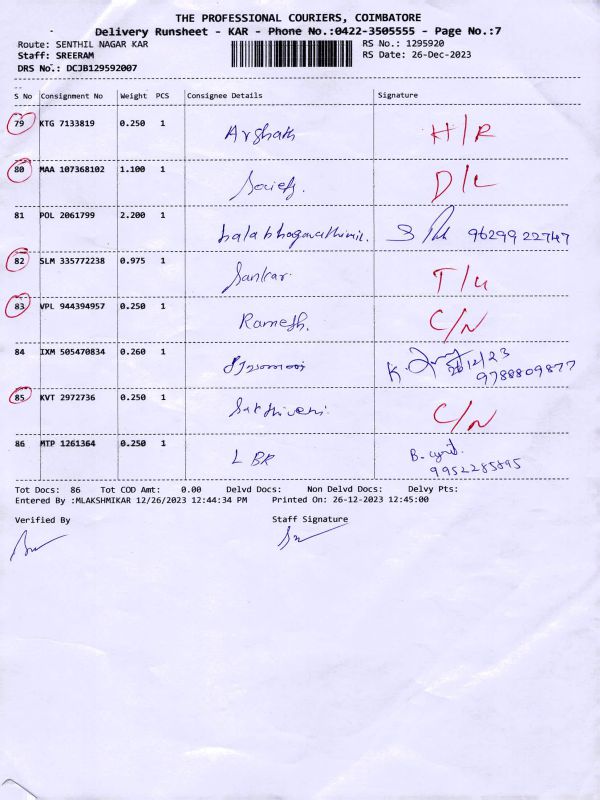 THE PROFESSIONAL COURIERS, COIMBATORE
Delivery Runsheet - KAR - Phone No.:0422-3505555 - Page No.:7
Route: SENTHIL NAGAR KAR RS No.: 1295920
Staff: SREERAM RS Date: 26-Dec-2023
DRS No.: DCJB129592007
S No Consignment No Weight PCS Consignee Details Signature
79 KTG 7133819 0.250 1 Arshath H/R
80 MAA 107368102 1.100 1 D/L
81 POL 2061799 2.200 1 96299 22747
82 SLM 335772238 0.975 1 Sankar. T/U
83 VPL 944394957 0.250 1 Ramesh. C/N
84 IXM 505470834 0.260 1 K. 26/12/23
9788809877
85 KVT 2972736 0.250 1 Sakthiveni. C/N
86 MTP 1261364 0.250 1 L BR B.
9952285895
Tot Docs: 86 Tot COD Amt: 0.00 Delvd Docs: Non Delvd Docs: Delvy Pts:
Entered By :MLAKSHMIKAR 12/26/2023 12:44:34 PM Printed On: 26-12-2023 12:45:00
Verified By Staff Signature